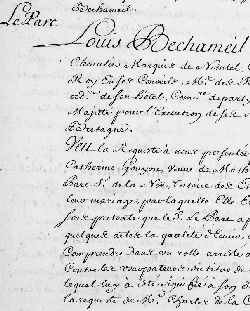 Bechameil.
Le Parc.
Louis Bechameil
Chevalier Marquis de Nointel, C
Roy en ses Conseils, M.e des R
ord.re de son hôtel, Com.re depart
Majesté pour l'Execution de ses
Bretagne.
Veu la Requeste à nous presentée
Catherine, Veuve de M
Parc S.r de la Noe, tutrice des
leur mariage, par laquelle Elle
sont presents, que le S. Le Parc ap
quelques actes la qualité d'Ecuier,
Comprendre dans un rolle arresté
Contre les usurpateurs du titre de
lequel luy a este signifié à son d
la requeste de M.e Charles de la C